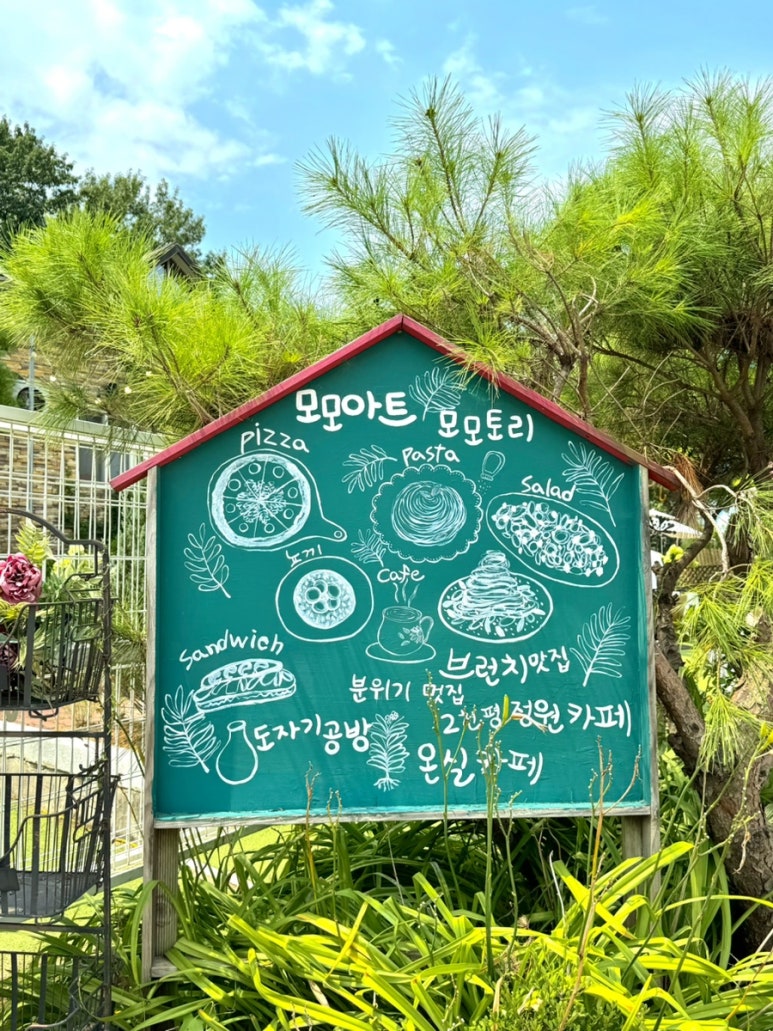 모모아트 모모토리
pizza
pasta
Salad
뇨끼
Cafe
Sandwich
브런치맛집
분위기 멋집
2천평 정원 카페
도자기공방
온실카페